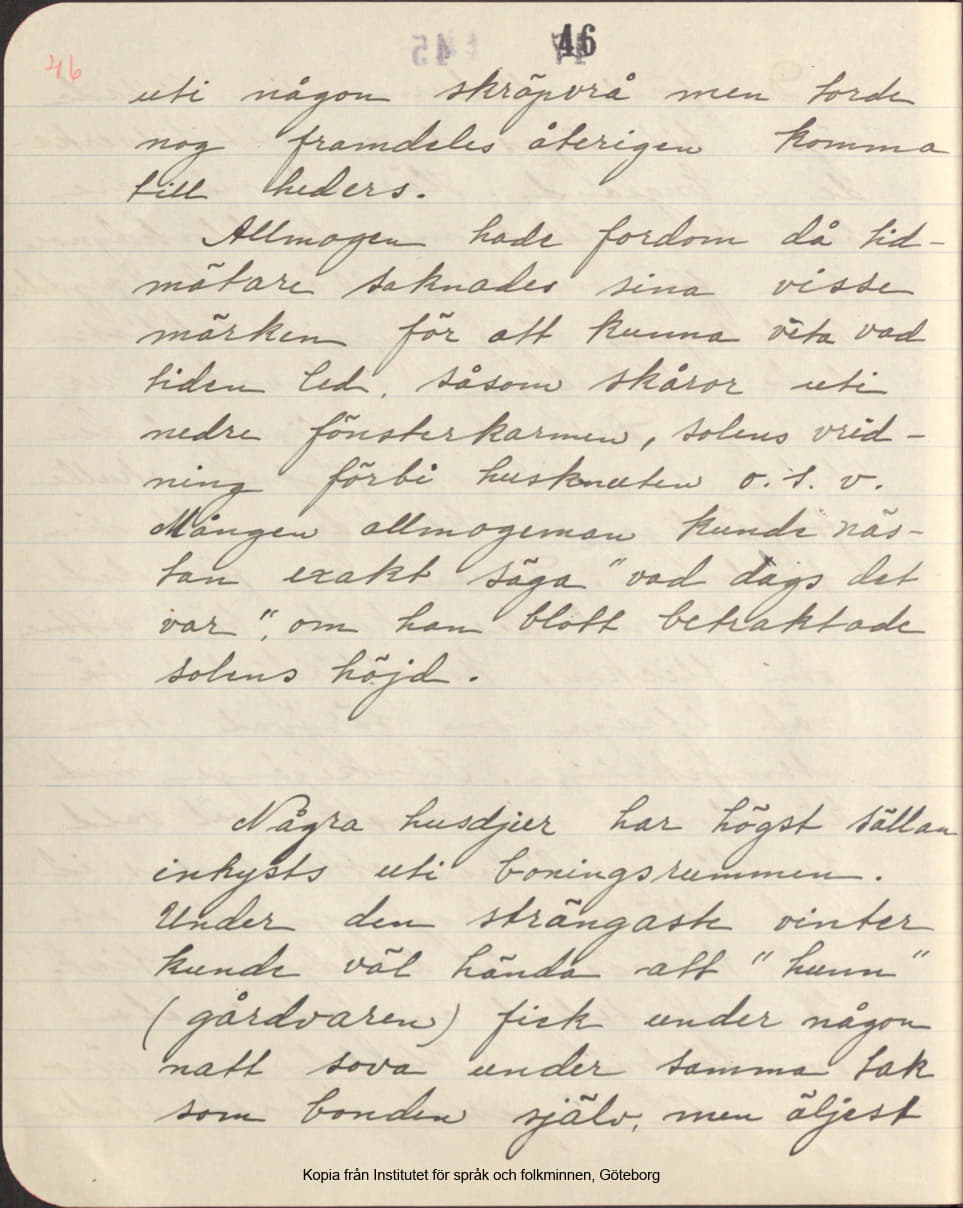 46
46
uti någon skräpvrå men torde
nog framdeles återigen komma
till heders.
Allmogen hade fordom då tid-
mätare saknades sina visse
märken för att kunna veta vad
tiden led, såsom skåror uti
nedre fönsterkarmen, solens vrid-
ning förbi husknuten o.s.v.
Mången allmogeman kunde näs-
tan exakt säga "vad dags det
var", om han blott betraktade
solens höjd.
Några husdjur har högst sällan
inhysts uti boningsrummen.
Under den strängaste vinter
kunde väl hända att "hunn"
(gårdvaren) fick under någon
natt sova under samma tak
som bonden själv, men äljest
Kopia från Institutet för språk och folkminnen, Göteborg